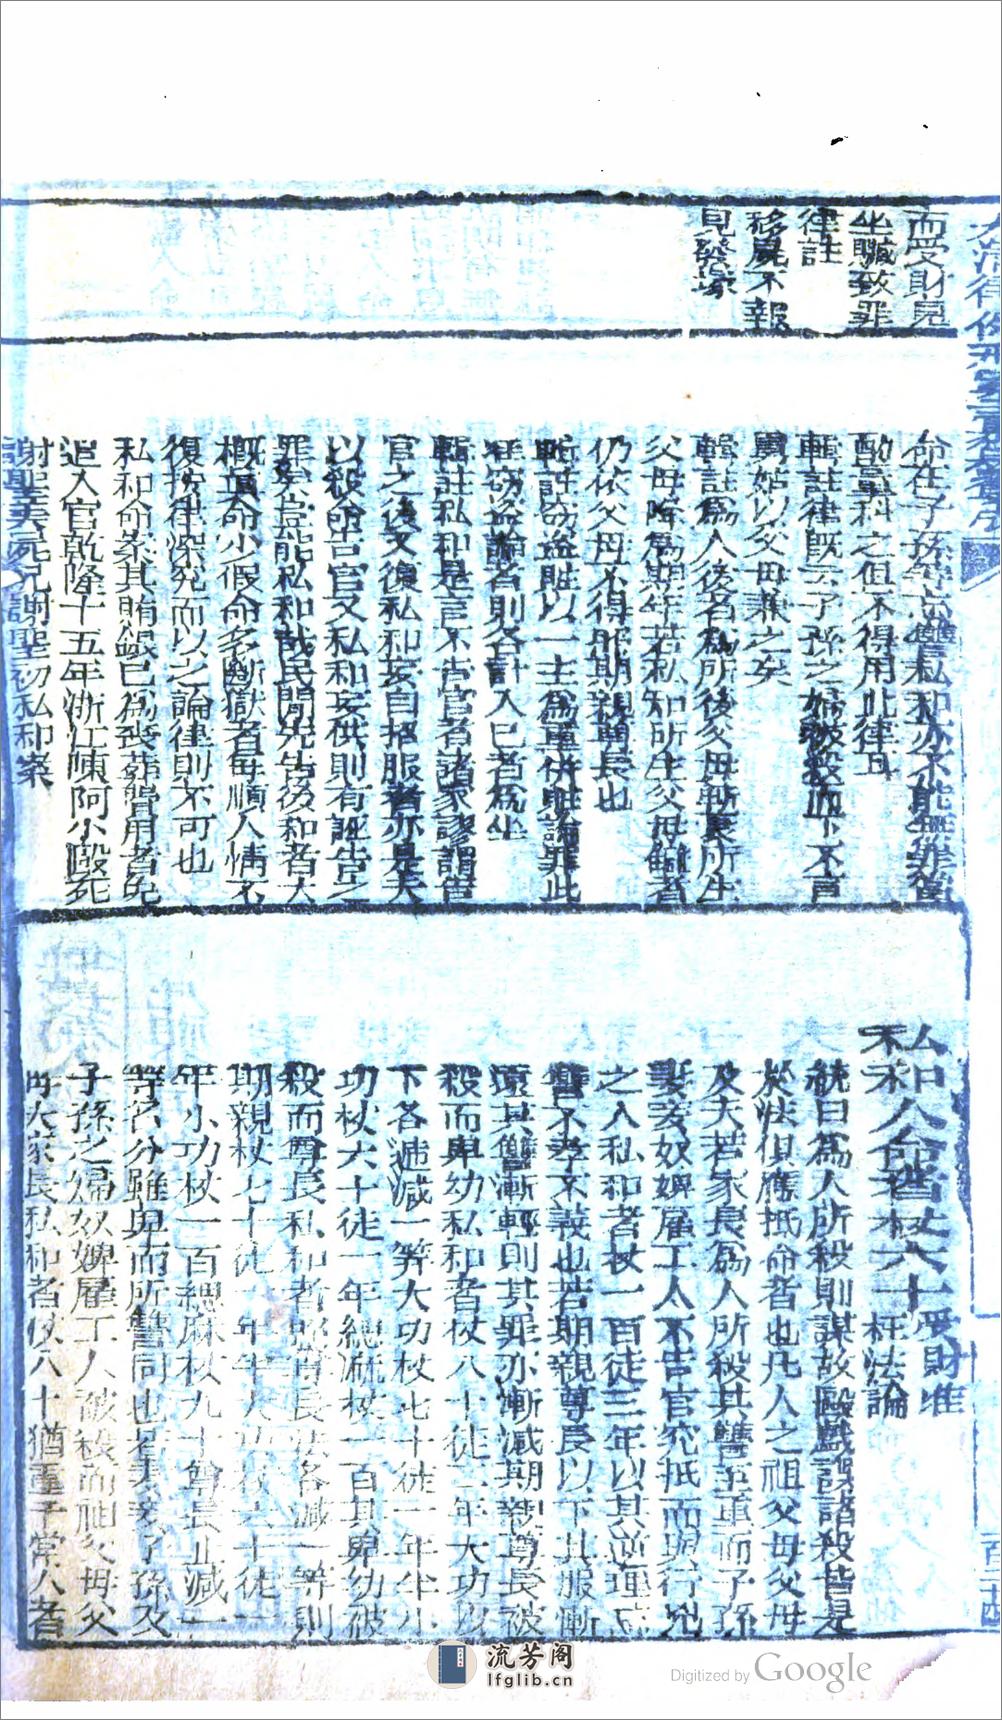 而受財見
坐贓致罪
律註
移屍不報
見發塚
命在子孫等
酌量科之但不得用此律
輯註律既云子孫之婦被殺而下不言
舅姑以父母兼之矣
輯註為人後者為所後父母斬衰所生
父母降為期年若私和所生父母
仍依父母不得
輯註竊盜贓以一主為重併贓論罪此
枉竊盜論者則各計入己者為坐
輯註私和是言不告官者諸家謬謂告
官之後又復私和妄自招服者亦是夫
以殺告官又私和妄供則有誣告之
罪矣豈能私和哉民間先告後和者大
概真命少假命多斷獄者每順人情不
復按律深究而以之論律則不可也
私和命案其賄銀已為喪葬費用者免
追入官乾隆十五年浙江陳阿小毆死
謝聖美屍兄謝聖初私和案
私和人命者杖六十受財准
枉法論
統曰為人所殺則謀故毆戲誤諸殺皆是
於法俱應抵命者也凡人之祖父母父母
及夫若家長為人所殺其讐至重而子孫
妻妾奴婢雇工人不告官究抵而與行兇
之人私和者杖一百徒三年以其逆理忘
讐不孝不義也若期親尊長以下其服漸
遠其讐漸輕則其罪亦漸減期親尊長被
殺而卑幼私和者杖八十徒二年大功以
下各遞減一等大功杖七十徒一年半小
功杖六十徒一年緦麻杖一百其卑幼被
殺而尊長私和者照尊長法各減一等則
期親杖七十徒一年半大功杖六十徒一
年小功杖一百緦麻杖九十尊長止減一
等名分雖卑而所讐同也若妻妾子孫及
子孫之婦奴婢雇工人被殺而祖父母父
母夫家長私和者杖八十猶重于常人者
百二十四
流芳阁
lfglib.cn
Digitized by Google